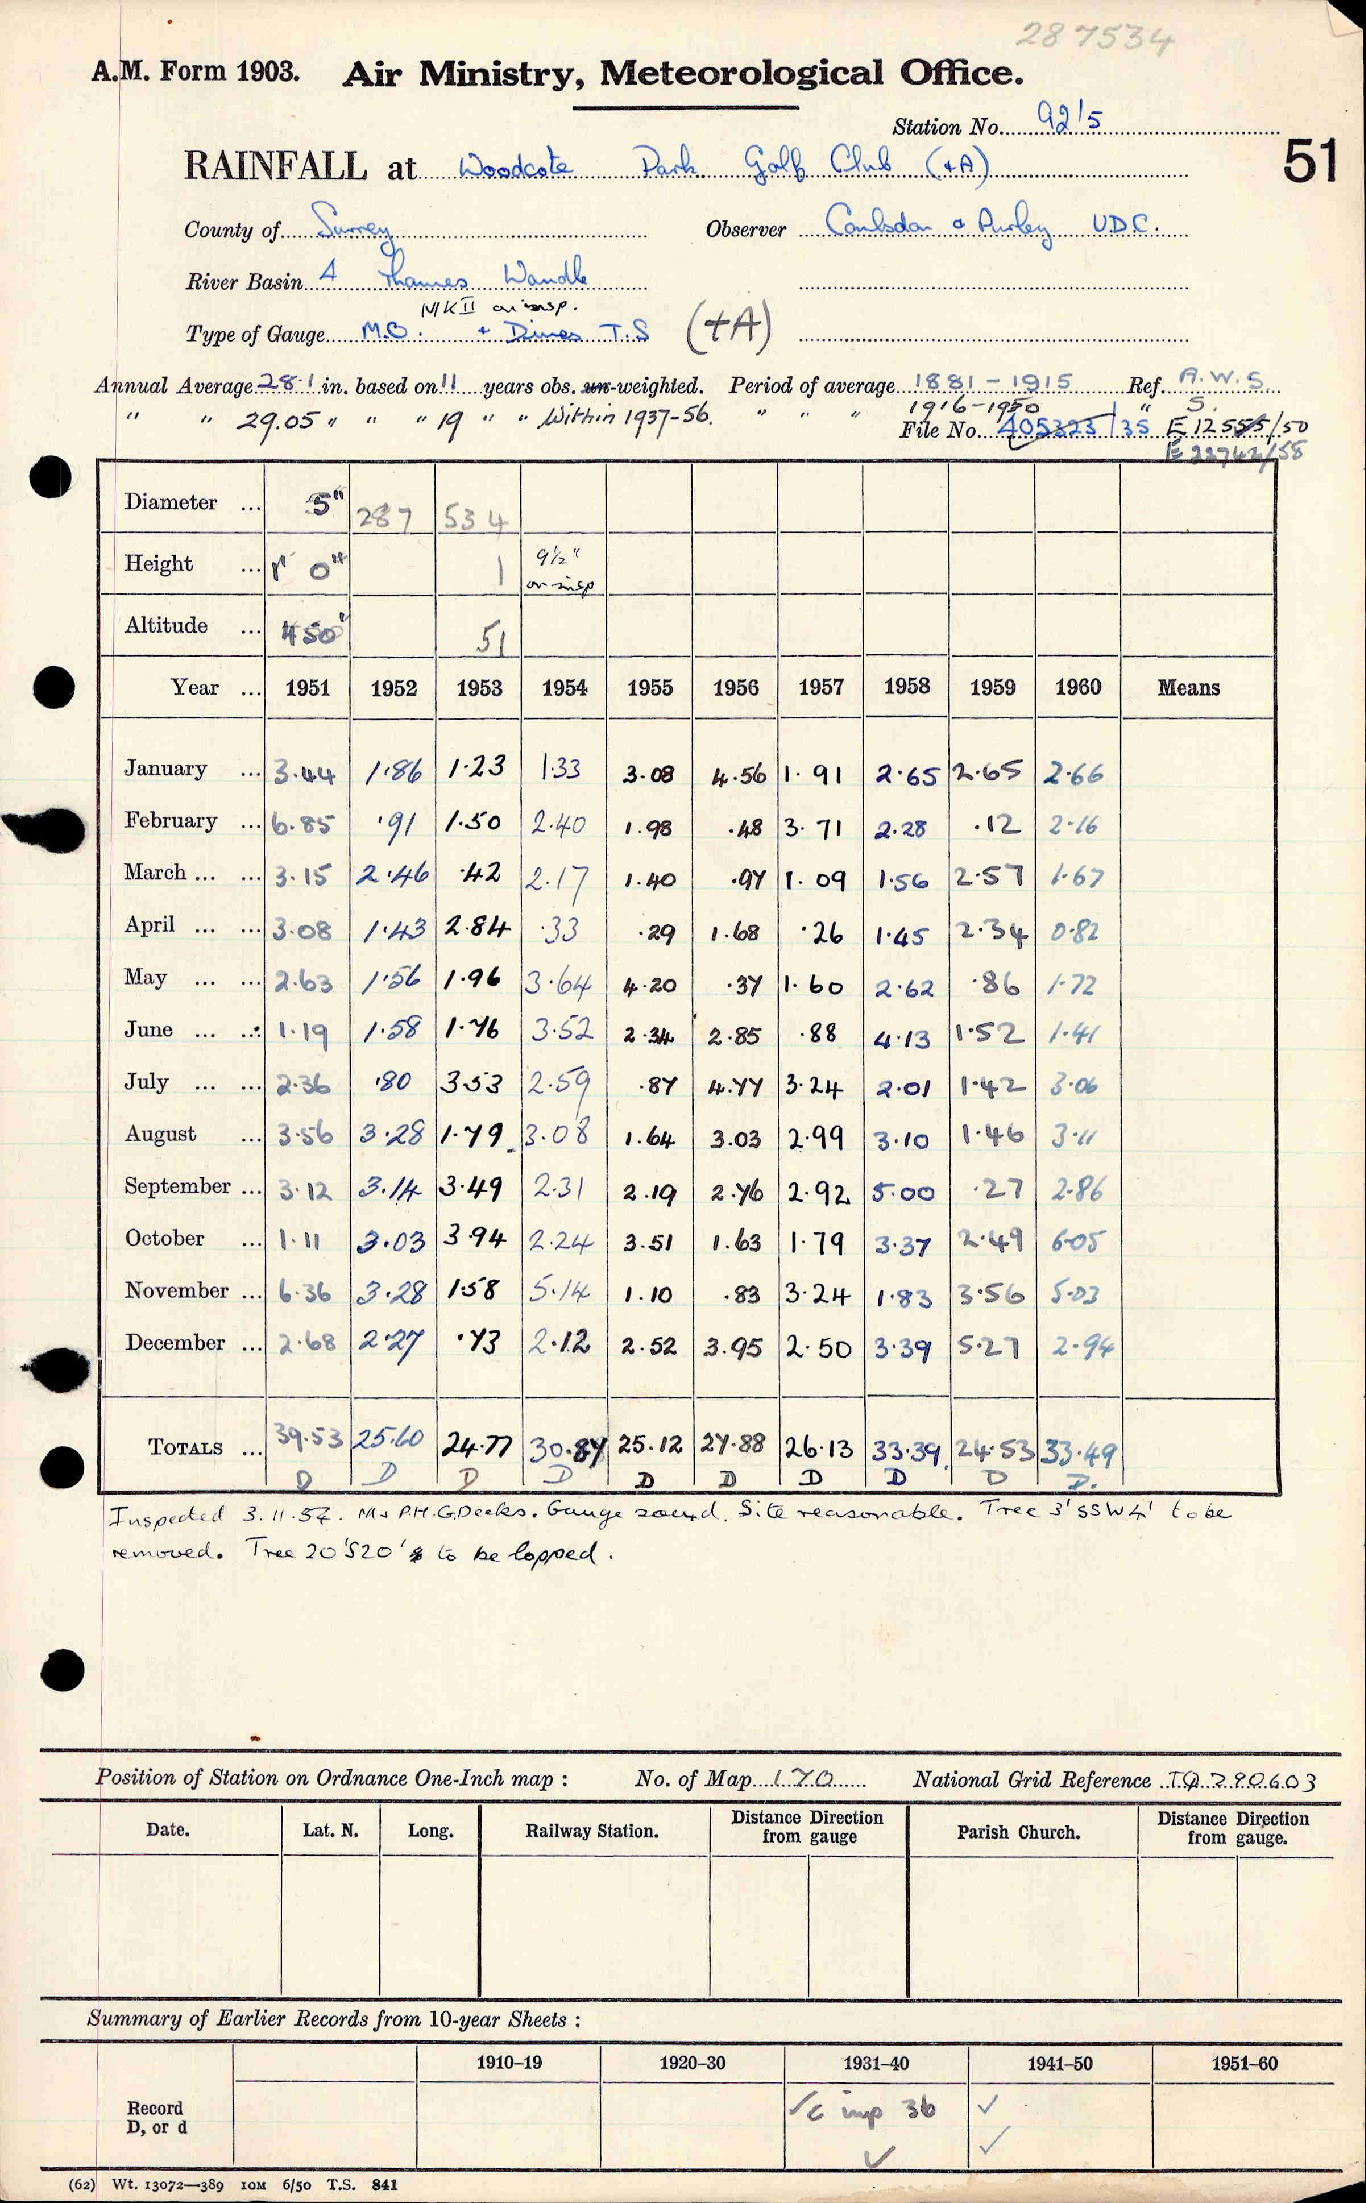 28 7534
A.M. Form 1903. Air Ministry, Meteorological Office.
Station No. 92/5
51
RAINFALL at Woodcote Park Golf Club (+A)
County of Surrey Observer Coulsdon & Purley UDC.
River Basin 4 Thames Wandle
MK II on insp.
Type of Gauge M.O. + Dines T.S (+A)
Annual Average 28.1 in. based on 11 years obs. un-weighted. Period of average 1881-1915 Ref. A.W.S
" " 29.05 " " " 19 " " Within 1937-56. " " " 1916-1950 " S.
File No. 405323/35 E 12555/50
E 22742/58
Diameter ... 5" 287 534
Height ... 1' 0" 1 9½" on insp
Altitude ... 450' 51
Year ... 1951 1952 1953 1954 1955 1956 1957 1958 1959 1960 Means
January ... 3.44 1.86 1.23 1.33 3.08 4.56 1.91 2.65 2.65 2.66
February ... 6.85 .91 1.50 2.40 1.98 .48 3.71 2.28 .12 2.16
March ... ... 3.15 2.46 .42 2.17 1.40 .97 1.09 1.56 2.57 1.67
April ... ... 3.08 1.43 2.84 .33 .29 1.68 .26 1.45 2.34 0.82
May ... ... 2.63 1.56 1.96 3.64 4.20 .37 1.60 2.62 .86 1.72
June ... ... 1.19 1.58 1.76 3.52 2.34 2.85 .88 4.13 1.52 1.41
July ... ... 2.36 .80 3.53 2.59 .87 4.77 3.24 2.01 1.42 3.06
August ... 3.56 3.28 1.79 3.08 1.64 3.03 2.99 3.10 1.46 3.11
September ... 3.12 3.14 3.49 2.31 2.19 2.76 2.92 5.00 .27 2.86
October ... 1.11 3.03 3.94 2.24 3.51 1.63 1.79 3.37 2.49 6.05
November ... 6.36 3.28 1.58 5.14 1.10 .83 3.24 1.83 3.56 5.03
December ... 2.68 2.27 .73 2.12 2.52 3.95 2.50 3.39 5.27 2.94
TOTALS ... 39.53 25.60 24.77 30.87 25.12 27.88 26.13 33.39 24.53 33.49
D D D D D D D D D D.
Inspected 3.11.54. Mr P.H.G.Deeks. Gauge sound. Site reasonable. Tree 3' SSW 4' to be
removed. Tree 20'S20' to be lopped.
Position of Station on Ordnance One-Inch map : No. of Map 170 National Grid Reference TQ 290603
Date. Lat. N. Long. Railway Station. Distance Direction from gauge Parish Church. Distance Direction from gauge.
Summary of Earlier Records from 10-year Sheets :
1910–19 1920–30 1931–40 1941–50 1951–60
Record D, or d ✓c inp 36 ✓
✓ ✓
(62) Wt. 13072—389 10M 6/50 T.S. 841